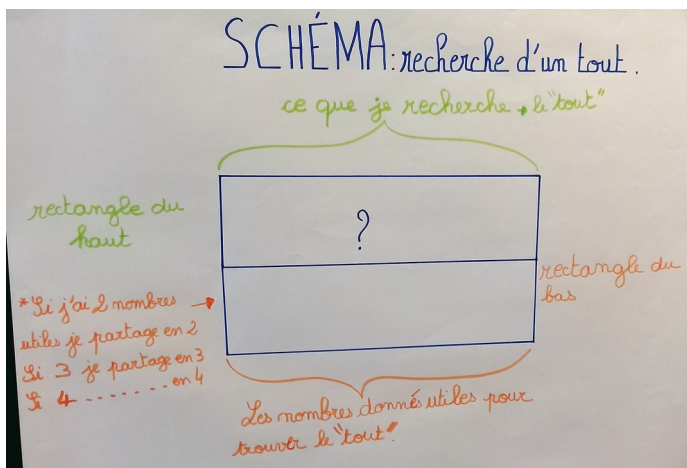 SCHÉMA: recherche d'un tout.
ce que je recherche → le "tout"
rectangle du
haut
?
rectangle du
bas
*Si j'ai 2 nombres →
utiles je partage en 2
Si 3 je partage en 3
Si 4 ........ en 4
Les nombres donnés utiles pour
trouver le "tout".